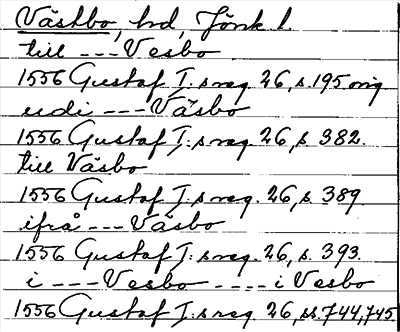 Västbo, hd, Jönk l.
till --- Vesbo
1556 Gustaf I:s reg. 26, s. 195 orig.
udi --- Väsbo
1556 Gustaf I:s reg. 26, s. 382.
till Väsbo
1556 Gustaf I:s reg. 26, s. 389
ifrå --- Väsbo
1556 Gustaf I:s reg. 26, s. 393.
i --- Vesbo ---- i Vesbo
1556 Gustaf I:s reg. 26, ss. 744, 745.